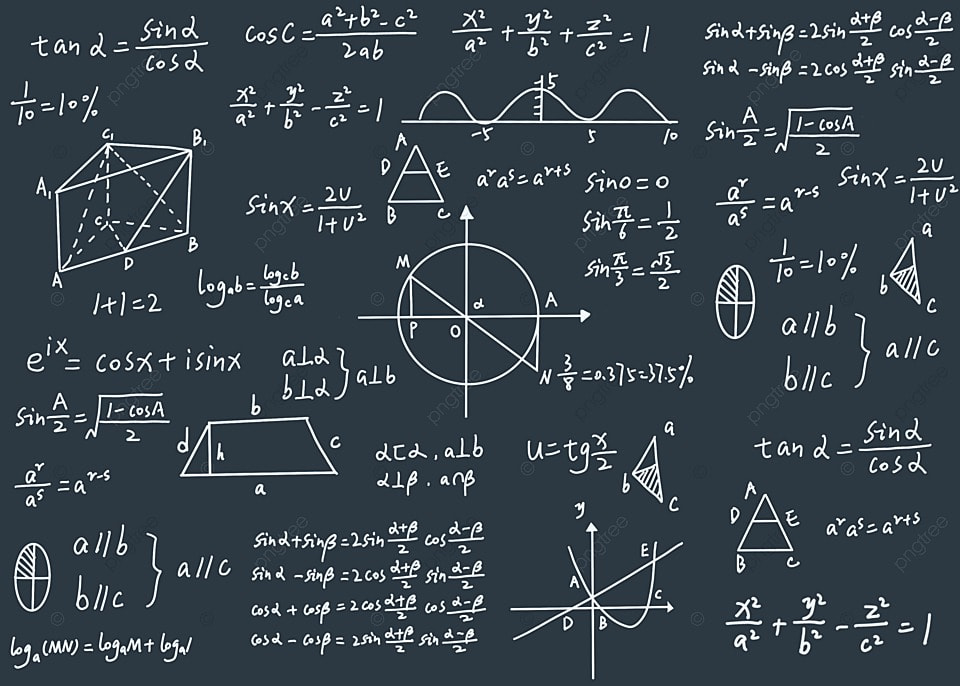 tan α = sinα/cosα
cosC = a²+b²-c²/2ab
x²/a² + y²/b² + z²/c² = 1
sinα+sinβ=2sin α+β/2 cos α-β/2
sinα-sinβ=2cos α+β/2 sin α-β/2
1/10=10%
x²/a² + y²/b² - z²/c² = 1
5
-5 5 10
sin A/2=√1-cosA/2
C₁ B₁
A₁
C
B
A D
sinx = 2U/1+U²
A
D E
B C
aʳaˢ=aʳ⁺ˢ
sin0=0
sin π/6 = 1/2
sin π/3 = √3/2
aʳ/aˢ=aʳ⁻ˢ
sinx = 2U/1+U²
1+1=2
logₐb=log꜀b/log꜀a
M
α A
P O
N
3/8=0.375=37.5%
1/10=10%
a
b
c
a//b
b//c
a//c
eⁱˣ=cosx+isinx
a⊥α
b⊥α
a⊥b
sin A/2=√1-cosA/2
b
d h c
a
aʳ/aˢ=aʳ⁻ˢ
α⊏α,a⊥b
α⊥β.a∩β
U=tg x/2
a
b
c
tan α = sinα/cosα
A
D E
B C
aʳaˢ=aʳ⁺ˢ
a//b
b//c
a//c
sinα+sinβ=2sin α+β/2 cos α-β/2
sinα-sinβ=2cos α+β/2 sin α-β/2
cosα+cosβ=2cos α+β/2 cos α-β/2
cosα-cosβ=2sin α+β/2 sin α-β/2
y
E
A
C
D B
x²/a² + y²/b² - z²/c² = 1
logₐ(MN)=logₐM+logₐ
pngtree